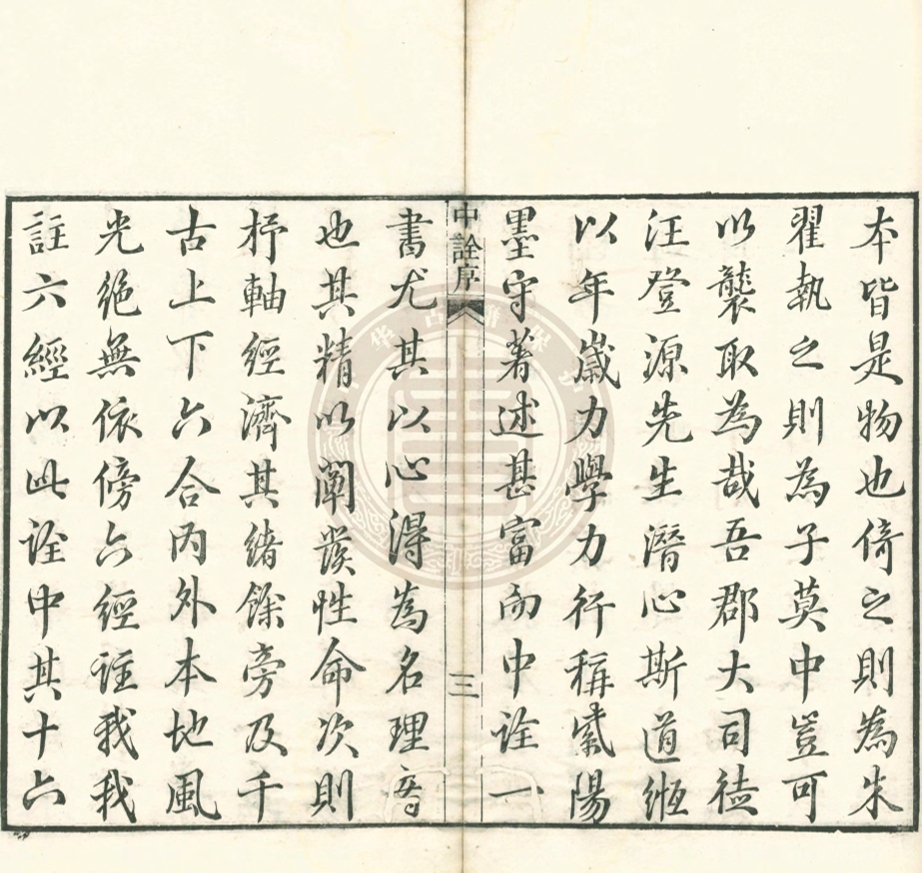 本皆是物也倚之則為朱
翟執之則為子莫中豈可
以襲取為哉吾郡大司徒
汪登源先生潛心斯道
以年歲力學力行稱紫陽
墨守著述甚富而中詮一
中詮序
三
書尤其以心得為名理者
也其精以闡發性命次則
杼軸經濟其緒餘旁及千
古上下六合內外本地風
光絕無依傍六經註我我
註六經以此詮中其十六